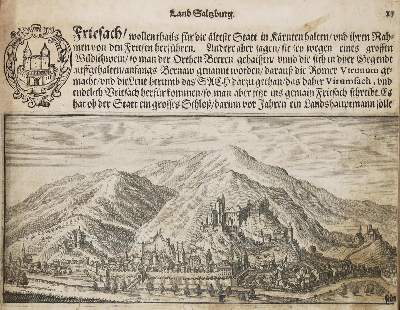 Land Saltzburg.
Friesach/ wollen theils für die älteste Statt in Kärnten halten/ vnd ihren Nah-
men von den Friesen herführen. Andere aber sagen/ sie seye wegen eines grossen
Wildschwein/ so man der Orthen Beeren geheissen/ vnnd die sich in dyser Gegendt
auffgehalten/ anfangs Bernaw genannt worden/ darauß die Römer Vironum ge-
macht/ vnd die Leut hernmb das SACH darzu gethan/ das daher Viromsach, vnd
endtlich Vriesach herfür kommen/ so man aber jetzt ins gemain Friesach schreibt. Es
hat ob der Statt ein grosses Schloß/ darinn vor Jahren ein Landshauptmann solle